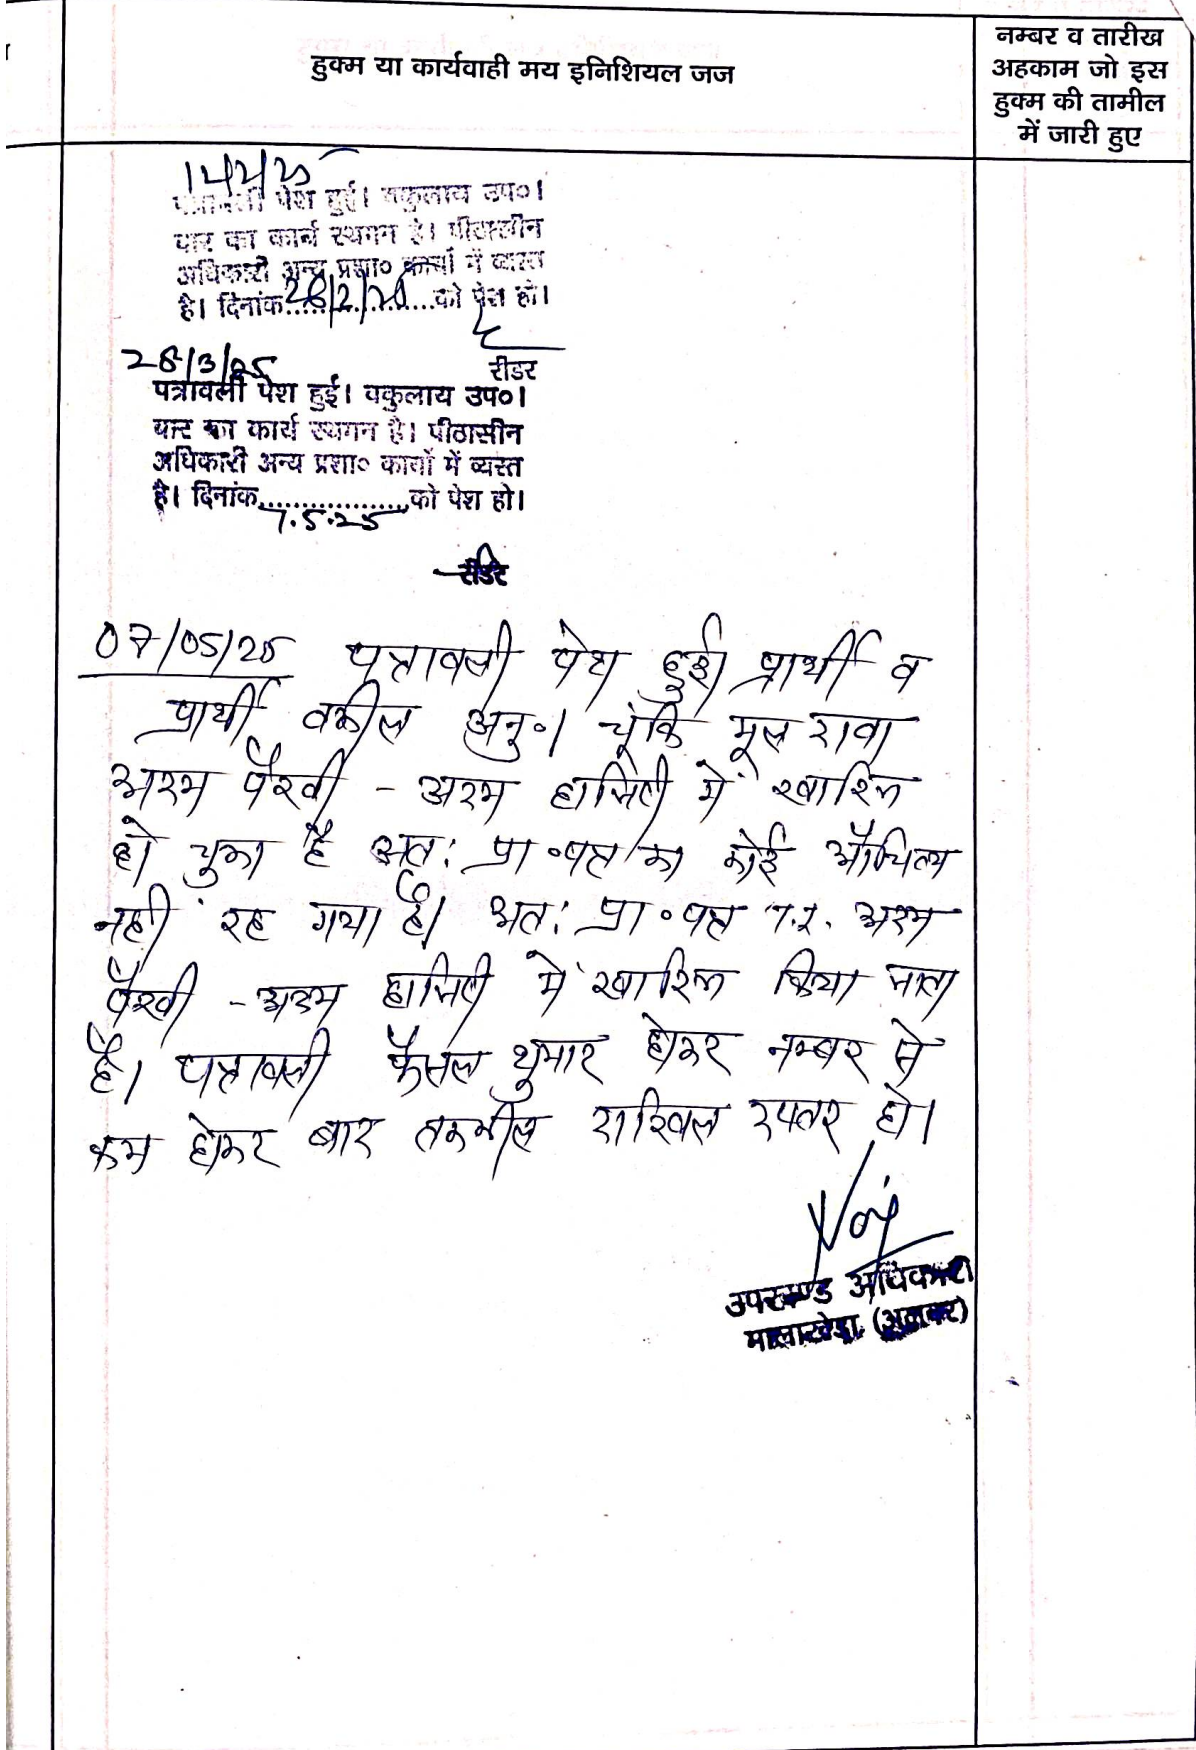 हुक्म या कार्यवाही मय इनिशियल जज
नम्बर व तारीख
अहकाम जो इस
हुक्म की तामील
में जारी हुए
पत्रावली पेश हुई। वकुलाय उप०।
बार का कार्य स्थगन है। पीठासीन
अधिकारी अन्य प्रशा० कार्यों में व्यस्त
है। दिनांक..................को पेश हो।
रीडर
28/3/25
पत्रावली पेश हुई। वकुलाय उप०।
बार का कार्य स्थगन है। पीठासीन
अधिकारी अन्य प्रशा० कार्यों में व्यस्त
है। दिनांक..................को पेश हो।
7.5.25
रीडर
07/05/25 पत्रावली पेश हुई। प्रार्थी व
प्रार्थी वकील अनु०। चूंकि मूल दावा
अदम पैरवी - अदम हाजिरी में खारिज
हो चुका है अतः प्रा०पत्र का कोई औचित्य
नहीं रह गया है। अतः प्रा०पत्र T.I. अदम
पैरवी - अदम हाजिरी में खारिज किया जाता
है। पत्रावली फैसल शुमार होकर नम्बर से
कम होकर बाद तकमील दाखिल दफ्तर हो।
उपखण्ड अधिकारी
मालाखेडा (अलवर)